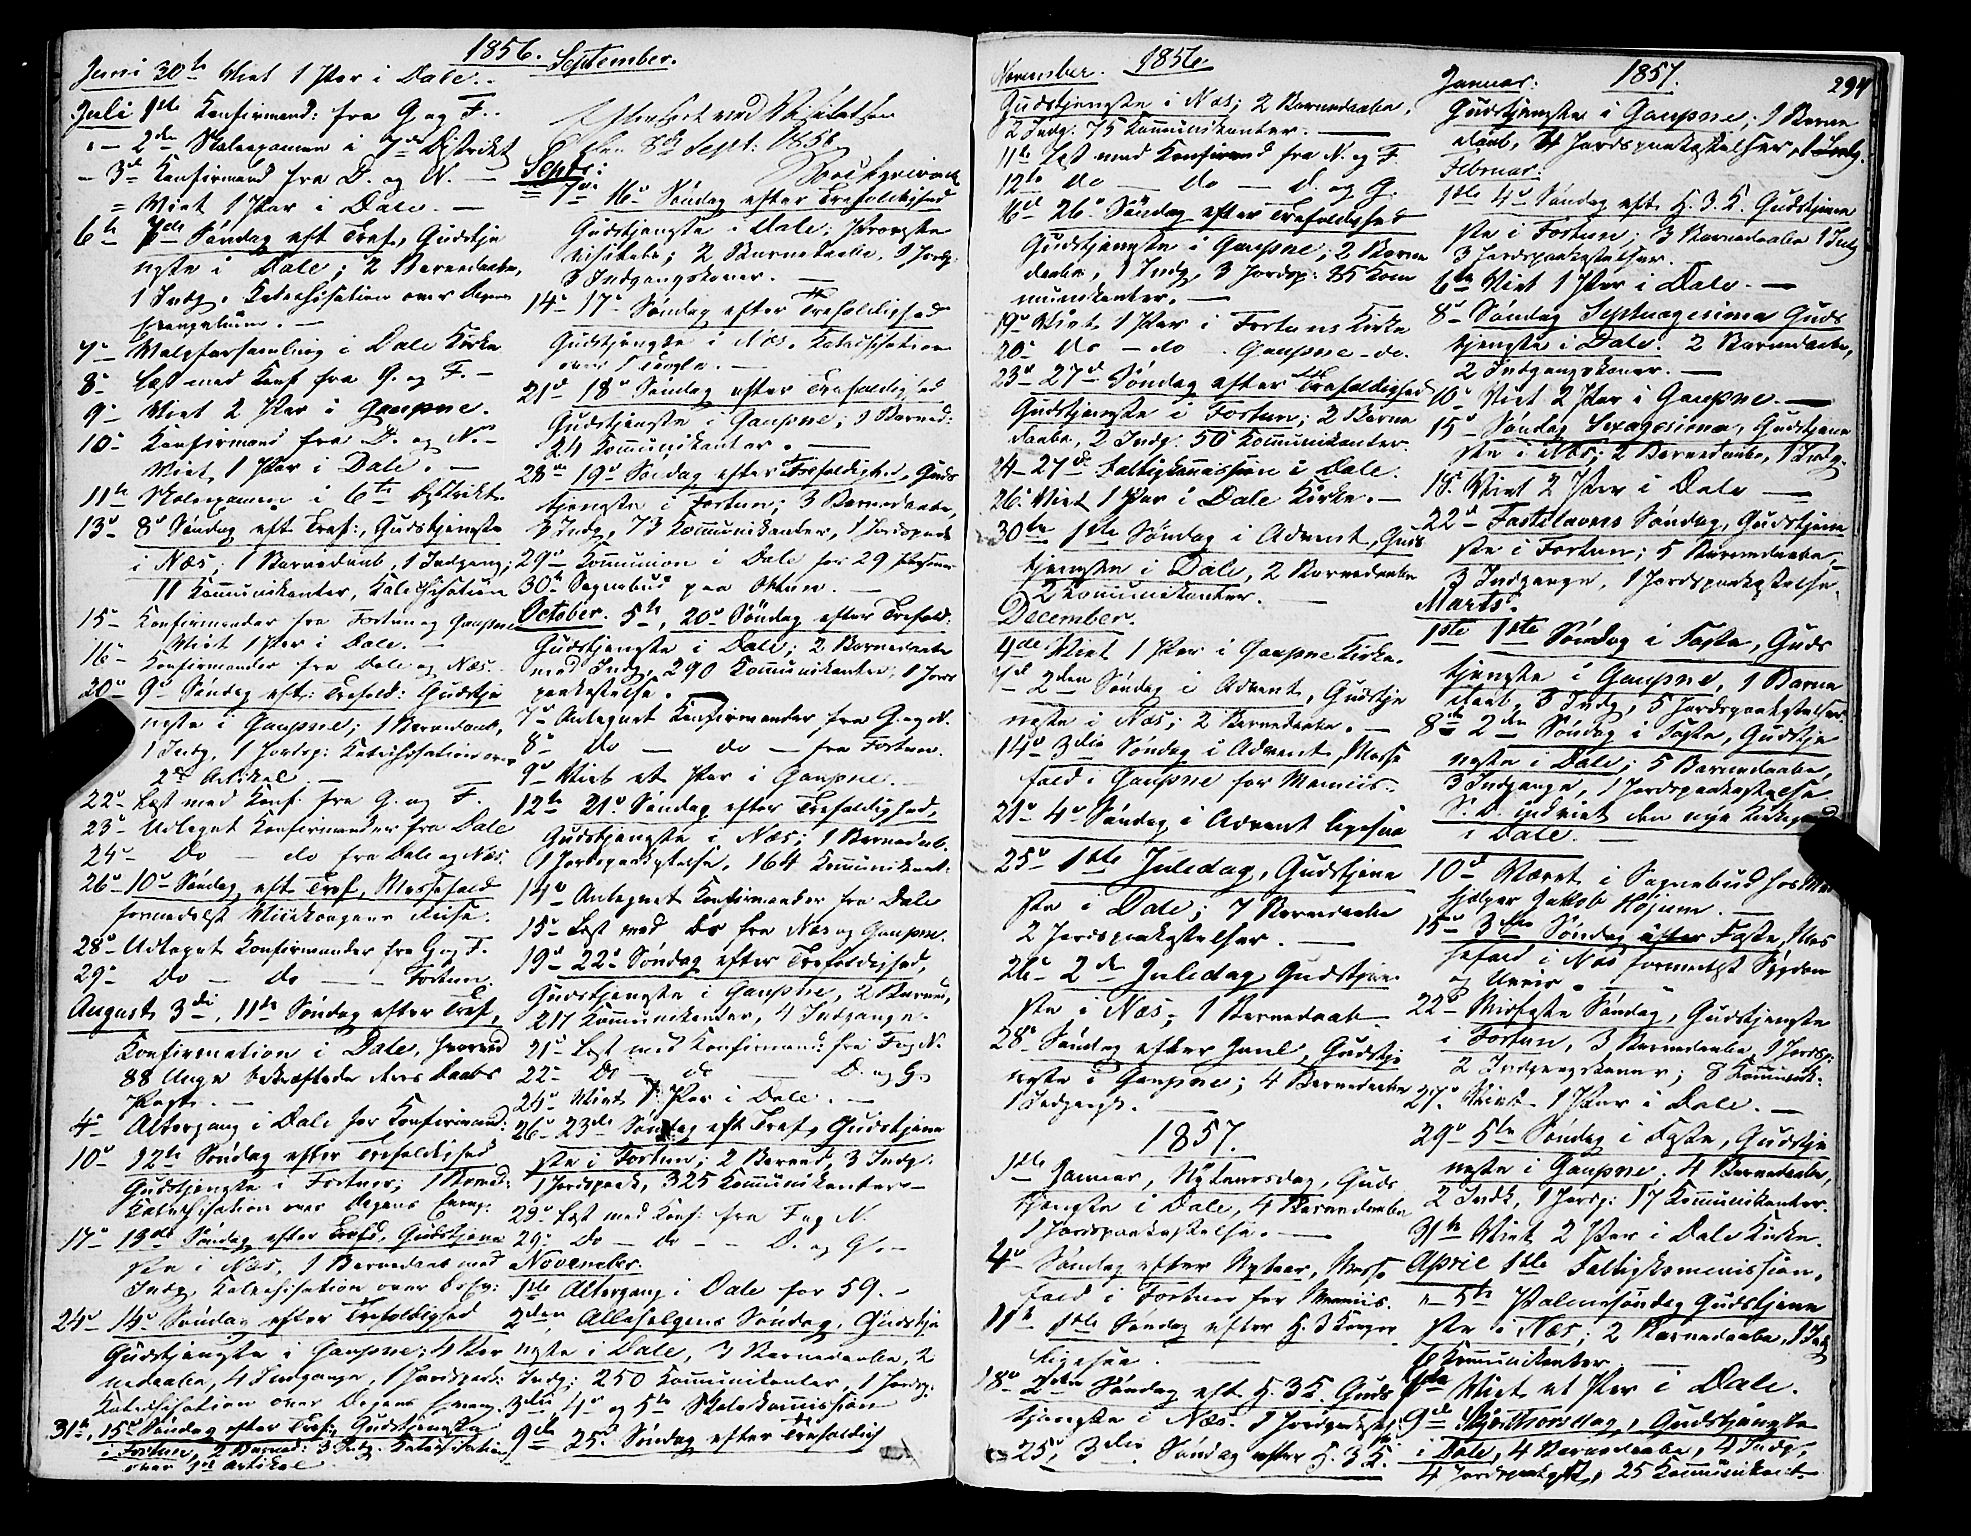 1856.
Juni 30te Viet 1 Par i Dale.
Juli 1ste Konfirmand: fra G og F.
" – 2den Skoleexamen i 7de Distrikt
– 3d Konfirmand fra D. og N. –
= Viet 1 Par i Dale. –
6te 7de Søndag eft Tref, Gudstje
neste i Dale; 2 Barnedaabe,
1 Indg. Katechisation over Dagens
Evangelium. –
7– Valgforsamling i Dale Kirke
8– Læst med Konf fra G. og F. –
9– Viet 2 Par i Gaupne.
10– Konfirmand fra D. og N. –
Viet 1 Par i Dale. –
11te Skoleexamen i 6te Distrikt.
13– 8– Søndag eft Tref:, Gudstjeneste
i Næs, 1 Barnedaab, 1 Indgang;
11 Kommunikanter, Katechisation
15– Konfirmander fra Fortun og Gaupne
Viet 1 Par i Dale. –
16– Konfirmander fra Dale og Næs.
20– 9– Søndag eft: Trefold: Gudstje
neste i Gaupne; 1 Barnedaab,
1 Indg, 1 Jordsp: Katechisation over
2den Artikel –
22– Læst med Konf. fra G. og F.
23– Udleget Konfirmander fra Dale
24– Do – do fra Dale og Næs.
26– 10– Søndag eft Tref, Messefald
formedelst Vicekongens Reise.
28– Udleget Konfirmander fra G og F.
29– Do – Do – – Fortun.
August 3die, 11te Søndag efter Tref,
Konfirmation i Dale, hvorved
88 Unge bekræftede deres Daabs
Pagt. –
4– Altergang i Dale for Konfirmand:
10– 12te Søndag efter Trefoldighed
Gudstjeneste i Fortun; 1 Barned:
Katechisation over Dagens Evang:
17– 13de Søndag efter Trefd, Gudstjene
ste i Næs, 1 Barnedaab med
Indg, Katechisation over
24– 14– Søndag efter Trefoldighed
Gudstjeneste i Gaupne; 4 Bar
nedaabe, 4 Indgange, 1 Jordspaak:
Katechisation over Dagens Evang.
31te, 15– Søndag efter Tref: Gudstjeneste
i Fortun, 2 Barned: 3 Indg. Katechisation
over 3die Artikel
September.
Efterseet ved Visitatsen
den 8de Sept: 1856
Septr:
= 7de 16– Søndag efter Trefoldighed
Gudstjeneste i Dale; Provste
visitats; 2 Barnedaabe, 1 Jordsp:
3 Indgangskoner. –
14– 17– Søndag efter Trefoldighed
Gudstjeneste i Næs. Katechisation
over
21– 18– Søndag efter Trefoldighed
Gudstjeneste i Gaupne; 1 Barned:
24 Kommunikanter. –
28– 19– Søndag efter Trefoldighed, Guds
tjeneste i Fortun; 3 Barnedaabe,
3 Indg, 73 Kommunikanter, 1 Jordspaak
29– Kommunion i Dale for 29 Personer
30te Sognebud paa –
October. 5te, 20– Søndag efter Trefold:
Gudstjeneste i Dale; 2 Barnedaabe
med Indg, 290 Kommunikanter, 1 Jords
paakastelse. –
7– Antegnet Konfirmander fra G. og N.
8– Do – do – fra Fortun.
9– Viet et Par i Gaupne. –
12te 21– Søndag efter Trefoldighed,
Gudstjeneste i Næs; 1 Barnedaab.
1 Jordspaakastelse, 164 Kommunikant.
14– Antegnet Konfirmander fra Dale
15– Læst med do fra Næs og Gaupne.
19– 22– Søndag efter Trefoldighed,
Gudstjeneste i Gaupne, 2 Barned,
217 Kommunikanter, 4 Indgange.
21– Læst med Konfirmand: fra F og N.
22– Do – do – D. og G.
24– Viet 1 Par i Dale. –
26– 23de Søndag eft Tref, Gudstjene
ste i Fortun; 2 Barned, 3 Indg.
1 Jordspaak, 325 Kommunikanter –
29– Læst med Konf: fra F og N.
29– Do – do – – D. og G. –
November.
1ste Altergang i Dale for 59. –
2den Allehelgens Søndag, Gudstje
neste i Dale, 3 Barnedaabe, 2
Indg; 250 Kommunikanter, 1 Jordsp:
3die 4– og 5te Skolekommission
9de 25– Søndag efter Trefoldigh
November. 1856.
Gudstjeneste i Næs; 2 Barnedaabe,
2 Indg. 75 Kommunikanter. –
11te Læst med Konfirmand fra N. og F.
12te do – do – D. og G.
16d 26– Søndag efter Trefoldighed
Gudstjeneste i Gaupne; 2 Barne
daabe, 1 Indg, 3 Jordsp: 85 Kom
munikanter. –
19– Viet 1 Par i Fortuns Kirke
20– do – do – Gaupne – do.
23– 27d Søndag efter Trefoldighed
Gudstjeneste i Fortun; 2 Barne
daabe, 2 Indg. 50 Kommunikanter.
24–27d. Fattigkommission i Dale.
26– Viet 1 Par i Dale Kirke. –
30te 1ste Søndag i Advent, Guds
tjeneste i Dale, 2 Barnedaabe
2 Kommunikanter. –
December.
4de Viet 1 Par i Gaupne Kirke.
7d 2den Søndag i Advent, Gudstje
neste i Næs; 2 Barnedaabe. –
14– 3die Søndag i Advent, Messe
fald i Gaupne for Meniis.
21– 4– Søndag i Advent ligesaa
25– 1ste Juledag, Gudstjene
ste i Dale; 7 Barnedaabe
2 Jordspaakastelser. –
26– 2den Juledag, Gudstjene
ste i Næs; 1 Barnedaab –
28– Søndag efter Juul, Gudstje
neste i Gaupne; 4 Barnedaabe
1 Indgangsk. –
1857.
1ste Januar, Nytaarsdag, Guds
tjeneste i Dale, 4 Barnedaabe
1 Jordspaakastelse. –
4– Søndag efter Nytaar, Messe
fald i Fortun for Meniis.
11te 1ste Søndag efter H. 3 Konger
ligesaa. –
18– 2den Søndag eft H. 3 K. Guds
tjeneste i Næs. 1 Jordpaakast:
25–, 3die Søndag efter H. 3 K.
Januar: 1857. 294
Gudstjeneste i Gaupne; 1 Barne
daab, 4 Jordspaakastelser, 1 Indg.
Februar:
1ste 4– Søndag eft H. 3. K. Gudstjene
ste i Fortun; 3 Barnedaabe 1 Indg
3 Jordspaakastelser.
6te Viet 1 Par i Dale. –
8– Søndag Septuagesima Guds
tjeneste i Dale. 2 Barnedaabe,
2 Indgangskoner. –
10– Viet 2 Par i Gaupne. –
15– Søndag Sexagesima, Gudstjene
ste i Næs; 2 Barnedaabe, 1 Indg.
18. Viet 2 Par i Dale –
22d Fastelavns Søndag, Gudstjene
ste i Fortun; 5 Barnedaabe,
3 Indgange, 1 Jordspaakastelse.
Marts.
1ste 1ste Søndag i Faste, Guds
tjeneste i Gaupne, 1 Barne
daab, 3 Indg, 5 Jordspaakastelser.
8de 2den Søndag i Faste, Gudstje
neste i Dale; 5 Barnedaabe,
3 Indgange, 1 Jordspaakastelse
S. D. indviet den nye Kirkegaard
i Dale. –
10d Været i Sognebud hos Med
hjelper Jakob Højum. –
15– 3die Søndag efter Faste, Mes
sefald i Næs formedelst Sygdom
og Uveir. –
22– Midfaste Søndag, Gudstjeneste
i Fortun, 3 Barnedaabe, 1 Jordsp:
2 Indgangskoner; 8 Kommunik.
27– Viet 1 Par i Dale. –
29– 5te Søndag i Faste, Gudstje
neste i Gaupne, 4 Barnedaabe,
2 Indk, 1 Jordsp: 17 Kommunikanter.
31te Viet 2 Par i Dale Kirke.
April 1ste Fattigkommission,
" – 5te Palmesøndag Gudstjene
ste i Næs; 2 Barnedaabe, 1 Indg
6 Kommunikanter –
Viet et Par i Dale.
9de Skjærthorsdag, Gudstjeneste
i Dale, 4 Barnedaabe, 4 Indg,
4 Jordspaakast, 25 Kommunikant.